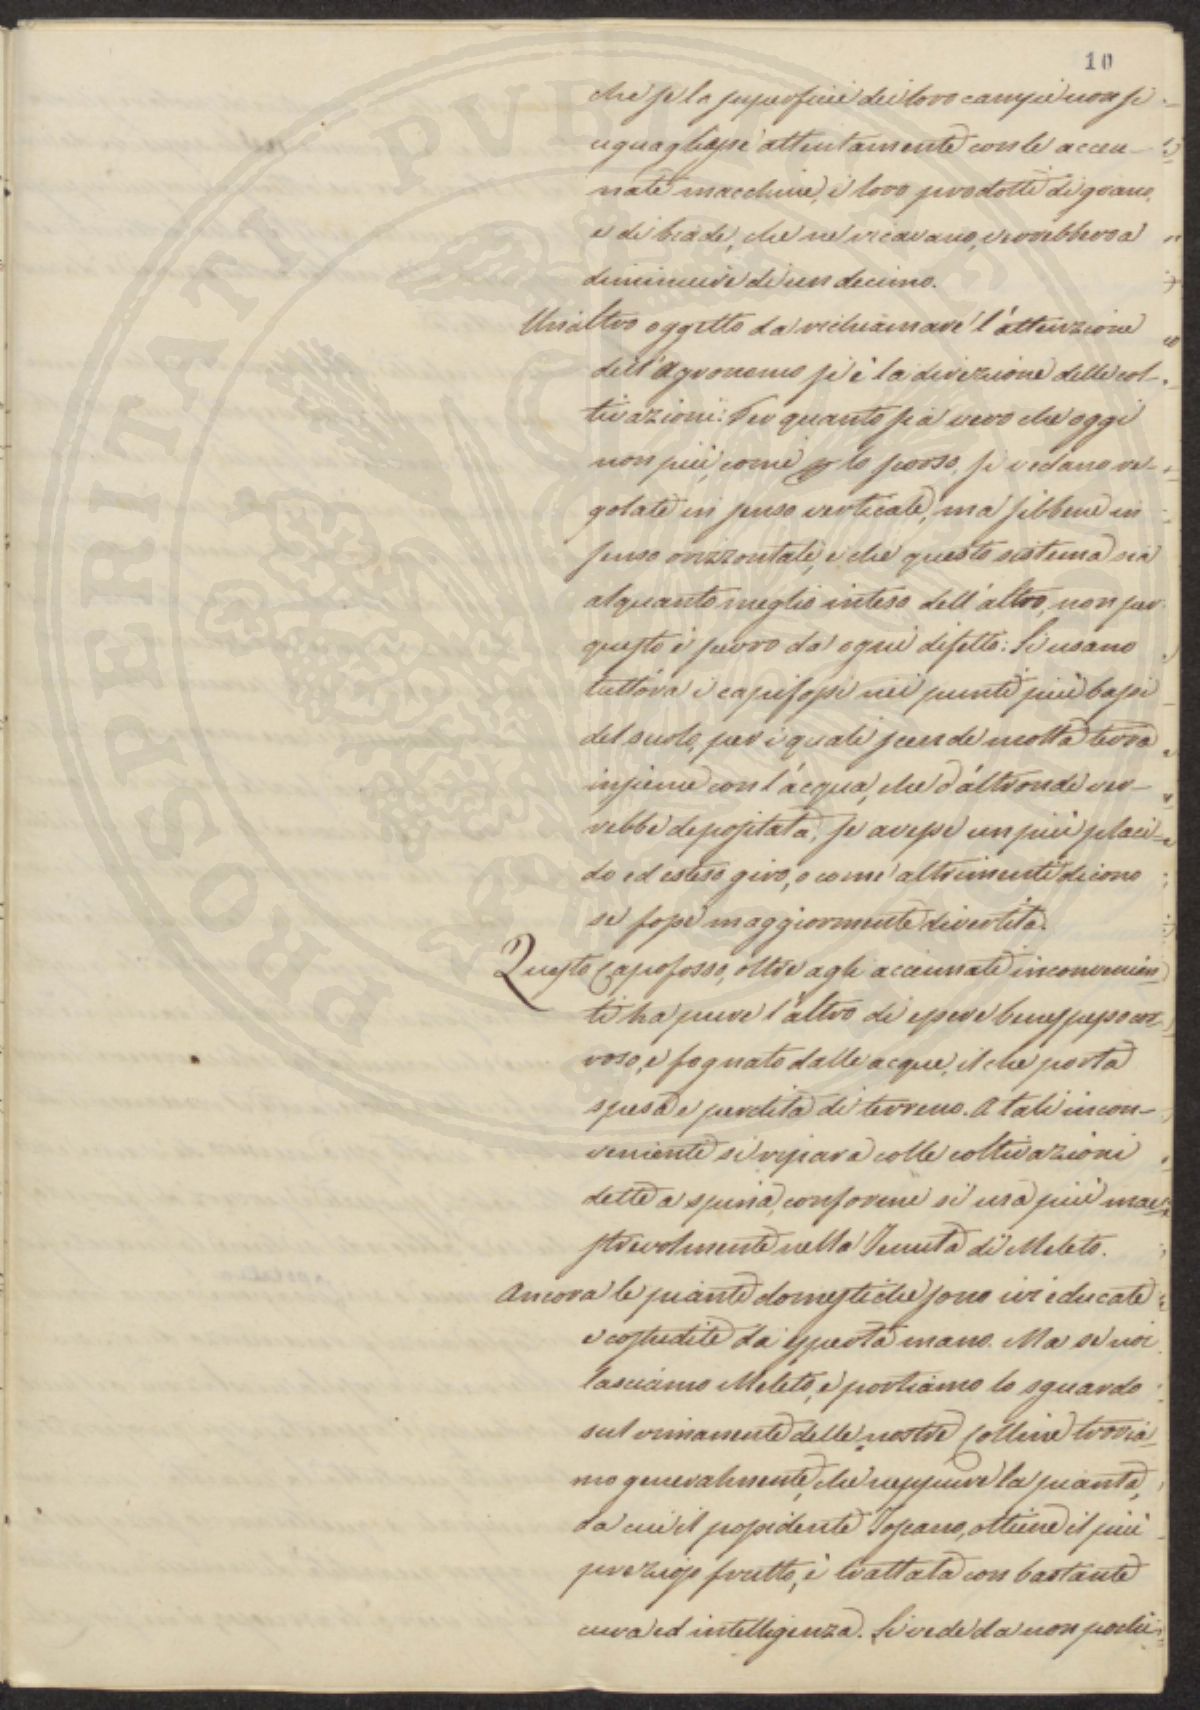 10
che se la superficie dei loro campi non si
uguagliasse attentamente con le accen-
nate macchine, i loro prodotti di grano,
e di biade, che ne ricavano, verrebbero a
diminuire di un decimo.
Un'altro oggetto da richiamare l'attenzione
dell'Agronomo si è la direzione delle col-
tivazioni: Per quanto sia vero che oggi
non più, come p lo scorso, si vedano re-
golate in senso verticale, ma sibbene in
senso orizzontale, e che questo sistema sia
alquanto meglio inteso dell'altro, non per
questo è puro da ogni difetto: Si usano
tuttora i capifossi nei punti più bassi
del suolo, per i quali scende molta terra
insieme con l'acqua, che d'altronde ver-
rebbe depositata, se avesse un più placi-
do ed esteso giro, o come altrimenti dicono
se fosse maggiormente divertita.
Questo Capofosso, oltre agli accennati inconvenien
ti ha pure l'altro di essere bene spesso cor
roso, e fognato dalle acque, il che porta
spesa e perdita di terreno. A tali incon-
veniente si ripara colle coltivazioni
dette a spina, conforme si usa più mae-
strevolmente nella Tenuta di Meleto.
Ancora le piante domestiche sono ivi educate
e custudite da esperta mano. Ma se noi
lasciamo Meleto, e portiamo lo sguardo
sul rimanente delle nostre Colline trovia-
mo generalmente, che neppure la pianta,
da cui il possidente Toscano, ottiene il più
prezioso frutto, è trattata con bastante
cura ed intelligenza. Si vede da non pochi
PROSPERITATI PVBLICAE